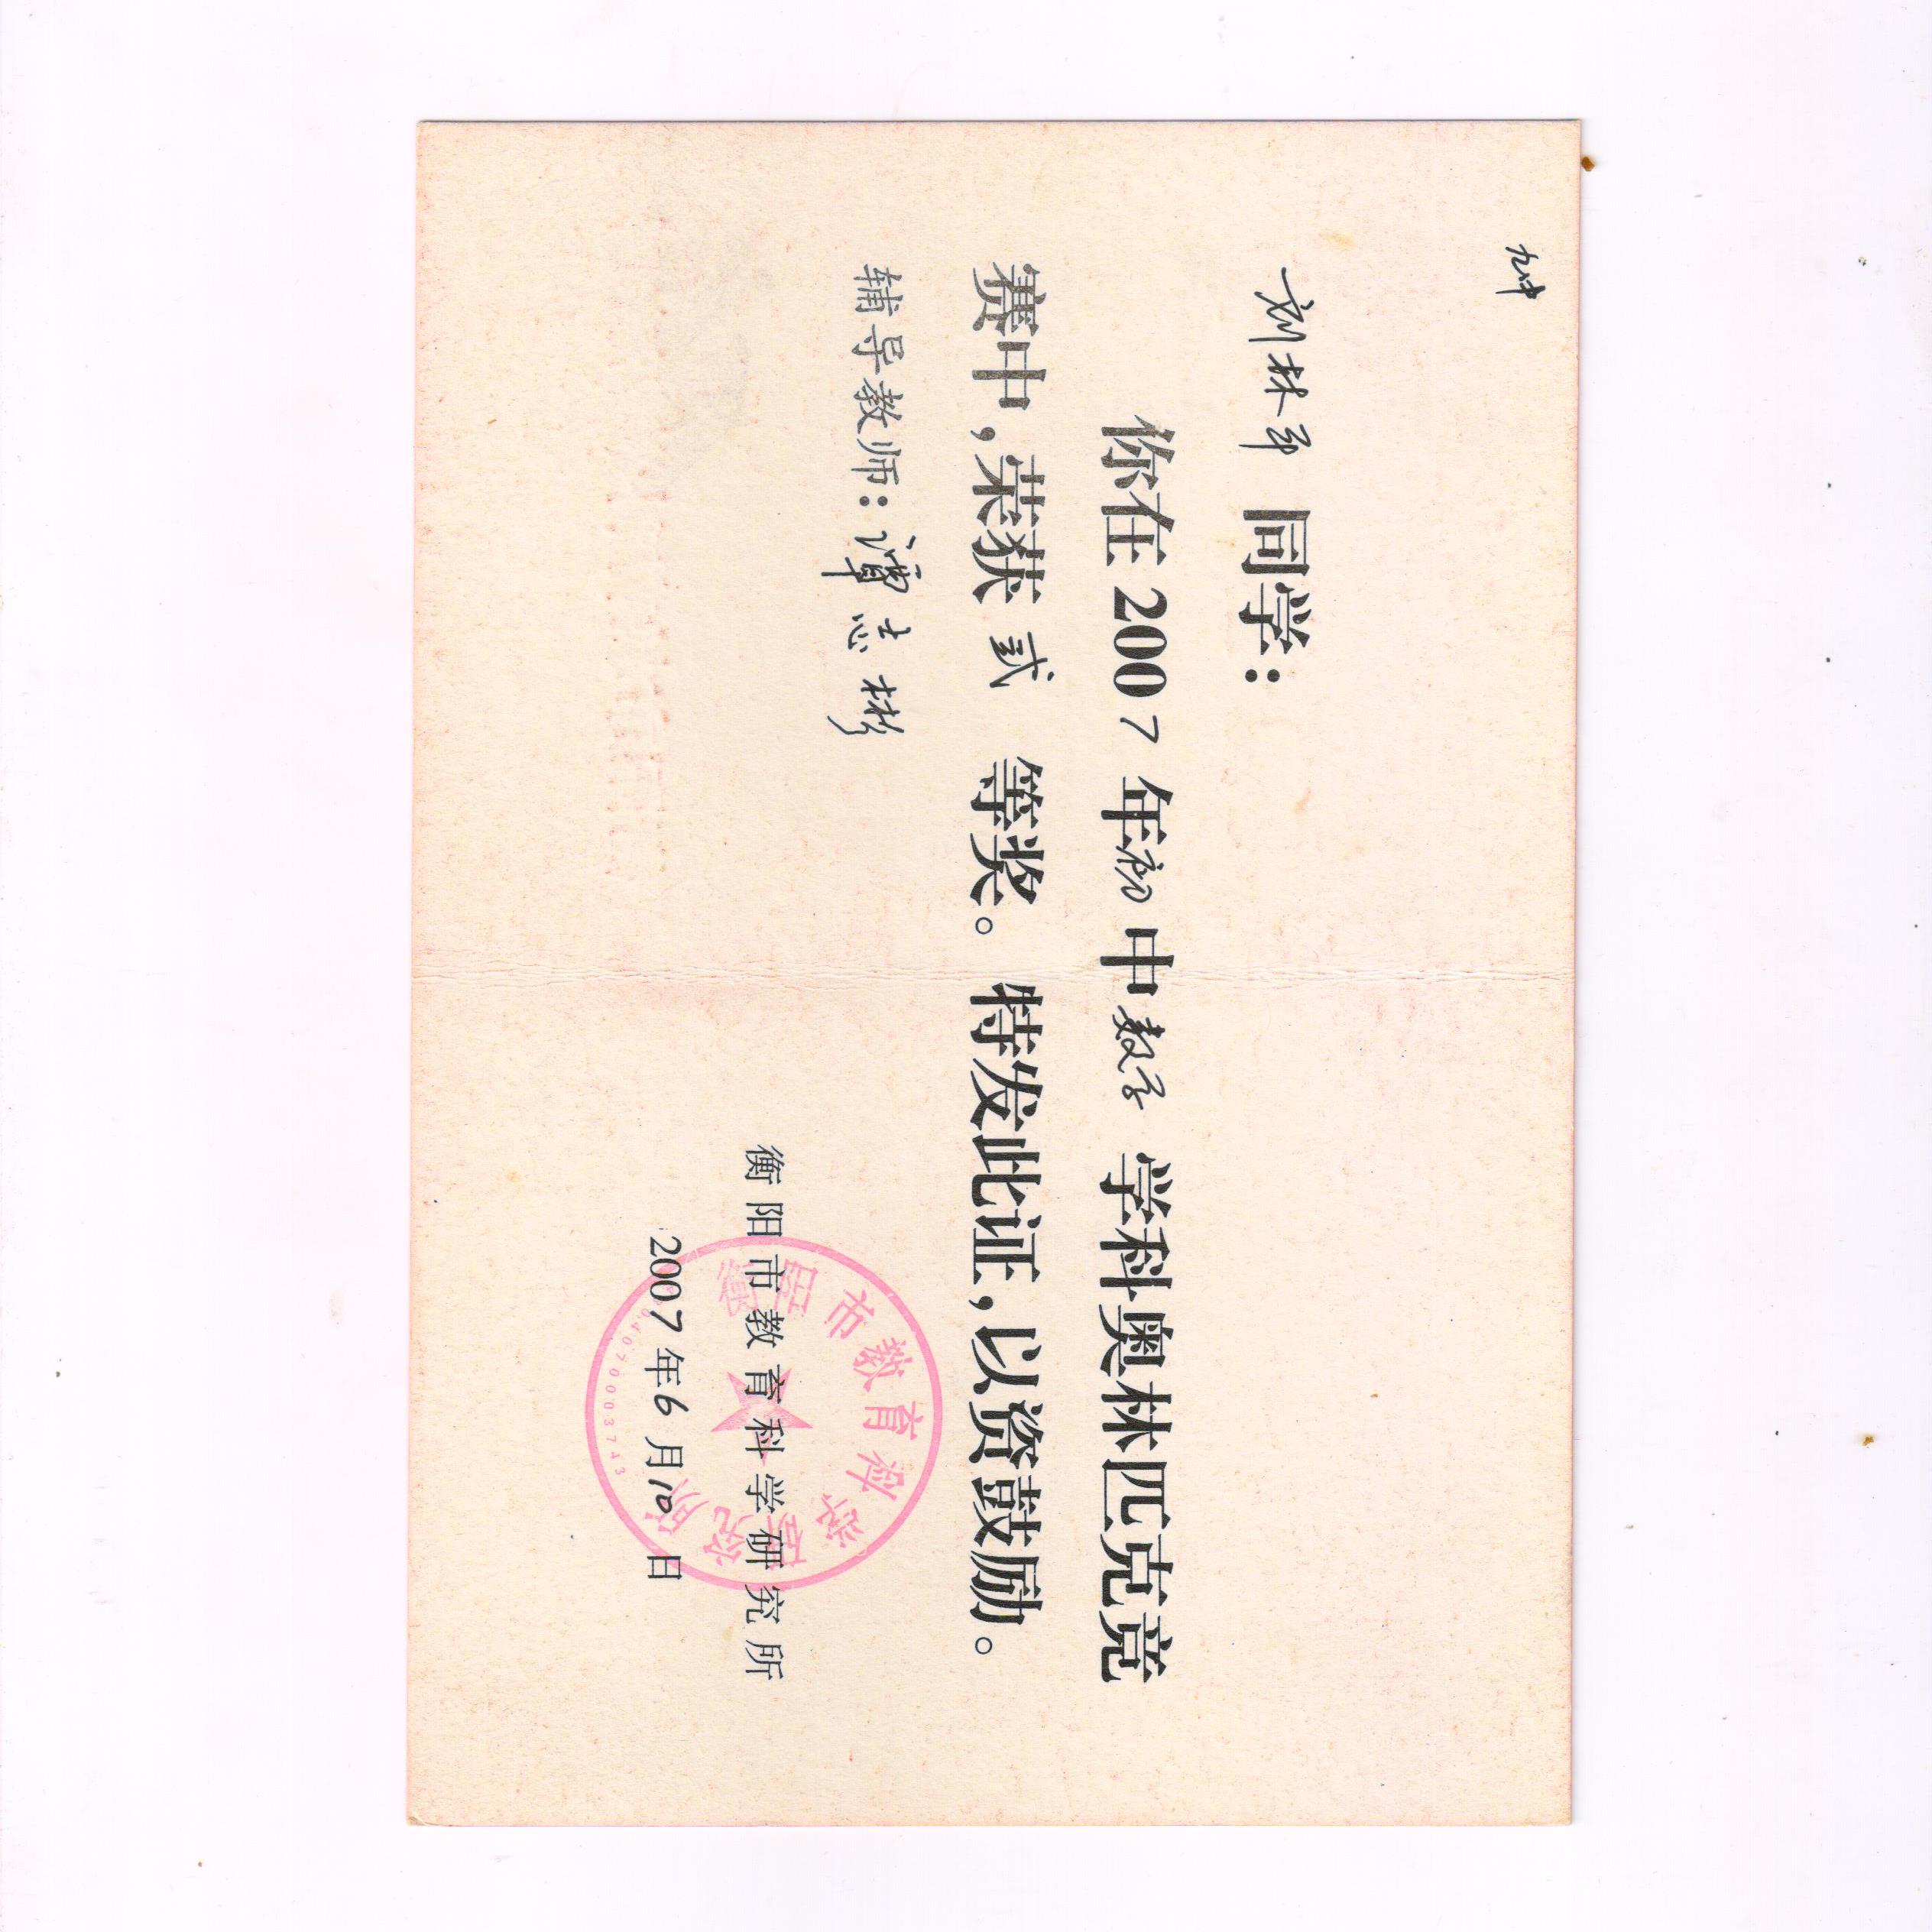 九中
刘林 同学:
你在2007年初中数学 学科奥林匹克竞
赛中,荣获 贰 等奖。特发此证,以资鼓励。
辅导教师:谭志彬
衡阳市教育科学研究所
2007年6月10日
衡阳市教育科学研究所